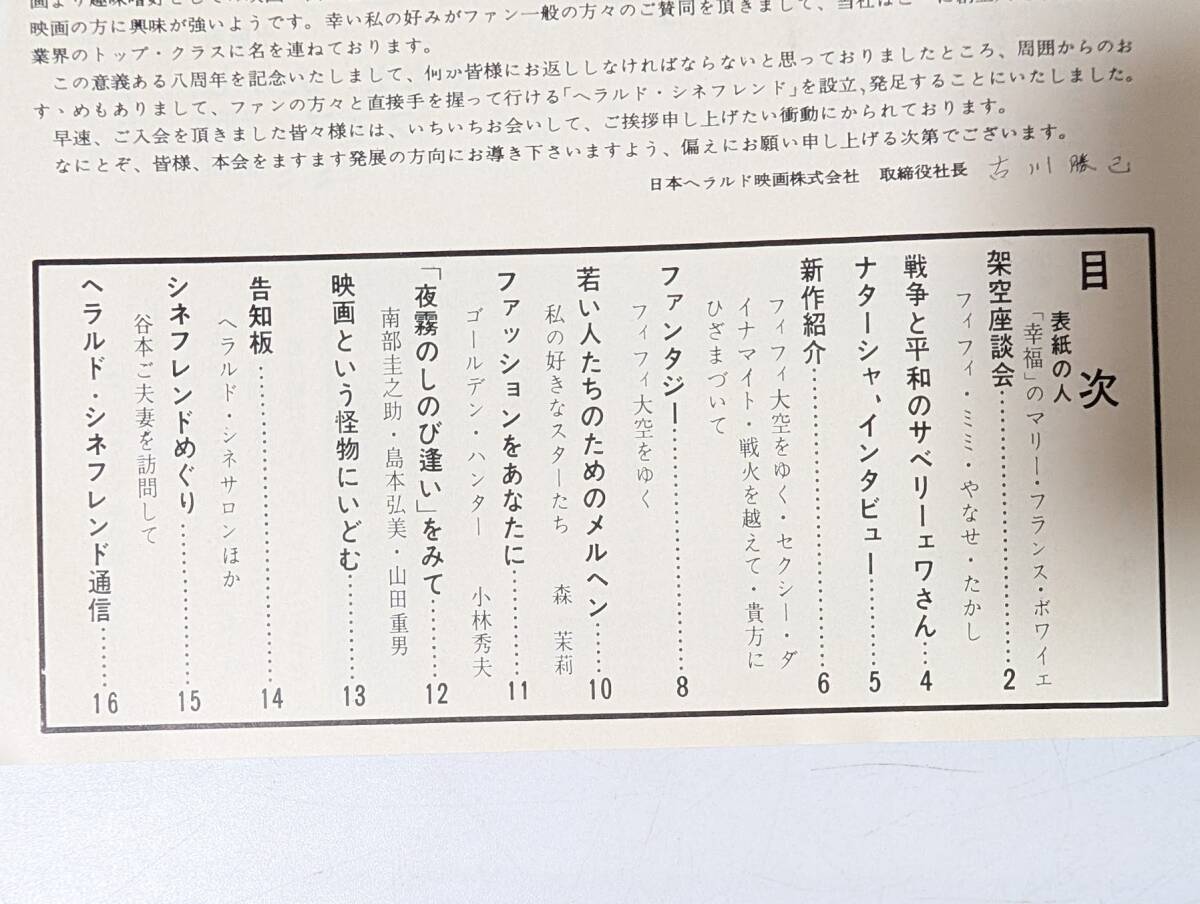 映画の方に興味が強いようです。幸い私の好みがファン一般の方々のご賛同を頂きまして、当社は
業界のトップ・クラスに名を連ねております。
この意義ある八周年を記念いたしまして、何か皆様にお返ししなければならないと思っておりましたところ、周囲からのお
すゝめもありまして、ファンの方々と直接手を握って行ける「ヘラルド・シネフレンド」を設立、発足することにいたしました。
早速、ご入会を頂きました皆々様には、いちいちお会いして、ご挨拶申し上げたい衝動にかられております。
なにとぞ、皆様、本会をますます発展の方向にお導き下さいますよう、偏えにお願い申し上げる次第でございます。
日本ヘラルド映画株式会社 取締役社長 古川勝己
目次
表紙の人
「幸福」のマリー・フランス・ボワイエ
架空座談会……2
フィフィ・ミミ・やなせ・たかし
戦争と平和のサベリーェワさん…4
ナターシャ、インタビュー……5
新作紹介……6
フィフィ大空をゆく・セクシー・ダ
イナマイト・戦火を越えて・貴方に
ひざまづいて
ファンタジー……8
フィフィ大空をゆく
若い人たちのためのメルヘン……10
私の好きなスターたち 森 茉莉
ファッションをあなたに……11
ゴールデン・ハンター 小林秀夫
「夜霧のしのび逢い」をみて……12
南部圭之助・島本弘美・山田重男
映画という怪物にいどむ……13
告知板……14
ヘラルド・シネサロンほか
シネフレンドめぐり……15
谷本ご夫妻を訪問して
ヘラルド・シネフレンド通信……16